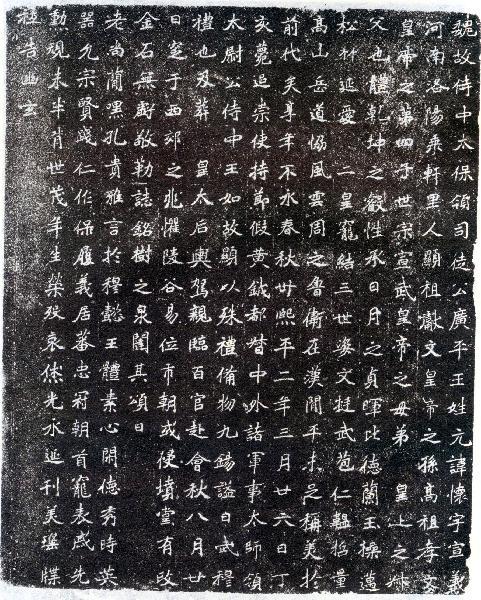 魏故侍中太保領司徒公廣平王姓元諱懷字宣義
河南洛陽乘軒里人顯祖獻文皇帝之孫高祖孝文
皇帝之第四子世宗宣武皇帝之母弟皇上之叔
父也體乾坤之叡性承日月之貞暉比德蘭玉操邁
松竹延愛二皇寵結三世姿文挺武苞仁韞哲量
高山岳道協風雲周之魯衛在漢間平未足稱美於
前代矣享年不永春秋卅熙平二年三月廿六日丁
亥薨追崇使持節假黃鉞都督中外諸軍事太師領
太尉公侍中王如故顯以殊禮備物九錫諡曰武穆
禮也及葬皇太后輿駕親臨百官赴會秋八月廿
日窆于西郊之兆懼陵谷易位市朝或侵墳堂有改
金石無虧敬勒誌銘樹之泉闥其頌曰
老尚簡嘿孔貴雅言於穆懿王體素心閑德秀時英
器允宗賢踐仁作保履義居蕃忠冠朝首寵表戚先
勳規未半背世茂年生榮歿哀休光永延刊美瑤牒
祗告幽玄